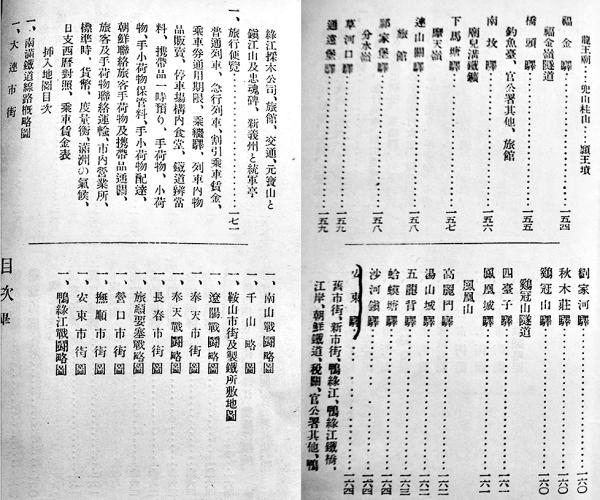 福金驛……一五四
福金嶺隧道
橋頭驛……一五五
釣魚臺、官公署其他、旅館
南坟驛……一五六
廟兒溝鐵鑛
下馬塘驛……一五七
摩天嶺
連山關驛……一五八
旅館
家堡驛……一五八
分水嶺
草河口驛……一五九
通遠堡驛……一五九
劉家河驛……一六〇
秋木莊驛……一六〇
鷄冠山驛……一六〇
鷄冠山隧道
四臺子驛……一六一
鳳凰城驛……一六一
鳳凰山
高麗門驛……一六二
湯山城驛……一六二
五龍背驛……一六三
蛤蟆塘驛……一六四
沙河鎭驛……一六四
安東驛……一六四
舊市街、新市街、鴨綠江、鴨綠江鐵橋、
江岸、朝鮮鐵道、稅關、官公署其他、鴨
綠江採木公司、旅館、交通、元寶山と
鎭江山及忠魂碑、新義州と統軍亭
一、旅行便覽……一七一
普通列車、急行列車、割引乘車賃金、
乘車券通用期限、乘繼驛、列車內物
品販賣、停車場構內食堂、鐵道辨當
料、携帶品一時預り、手荷物、小荷
物、手小荷物保管料、手小荷物配達、
朝鮮聯絡旅客手荷物及携帶品通關、
旅客及手荷物聯絡運輸、市內營業所、
標準時、貨幣、度量衡、滿洲の氣候、
日支西曆對照、乘車賃金表
挿入地圖目次
一、南滿鐵道線路槪略圖
一、大連市街圖
一、南山戰鬪略圖
一、千山略圖
一、鞍山市街及製鐵所敷地圖
一、遼陽戰鬪略圖
一、奉天市街圖
一、奉天戰鬪略圖
一、長春市街圖
一、旅順要塞戰略圖
一、營口市街圖
一、撫順市街圖
一、安東市街圖
一、鴨綠江戰鬪略圖
目次畢